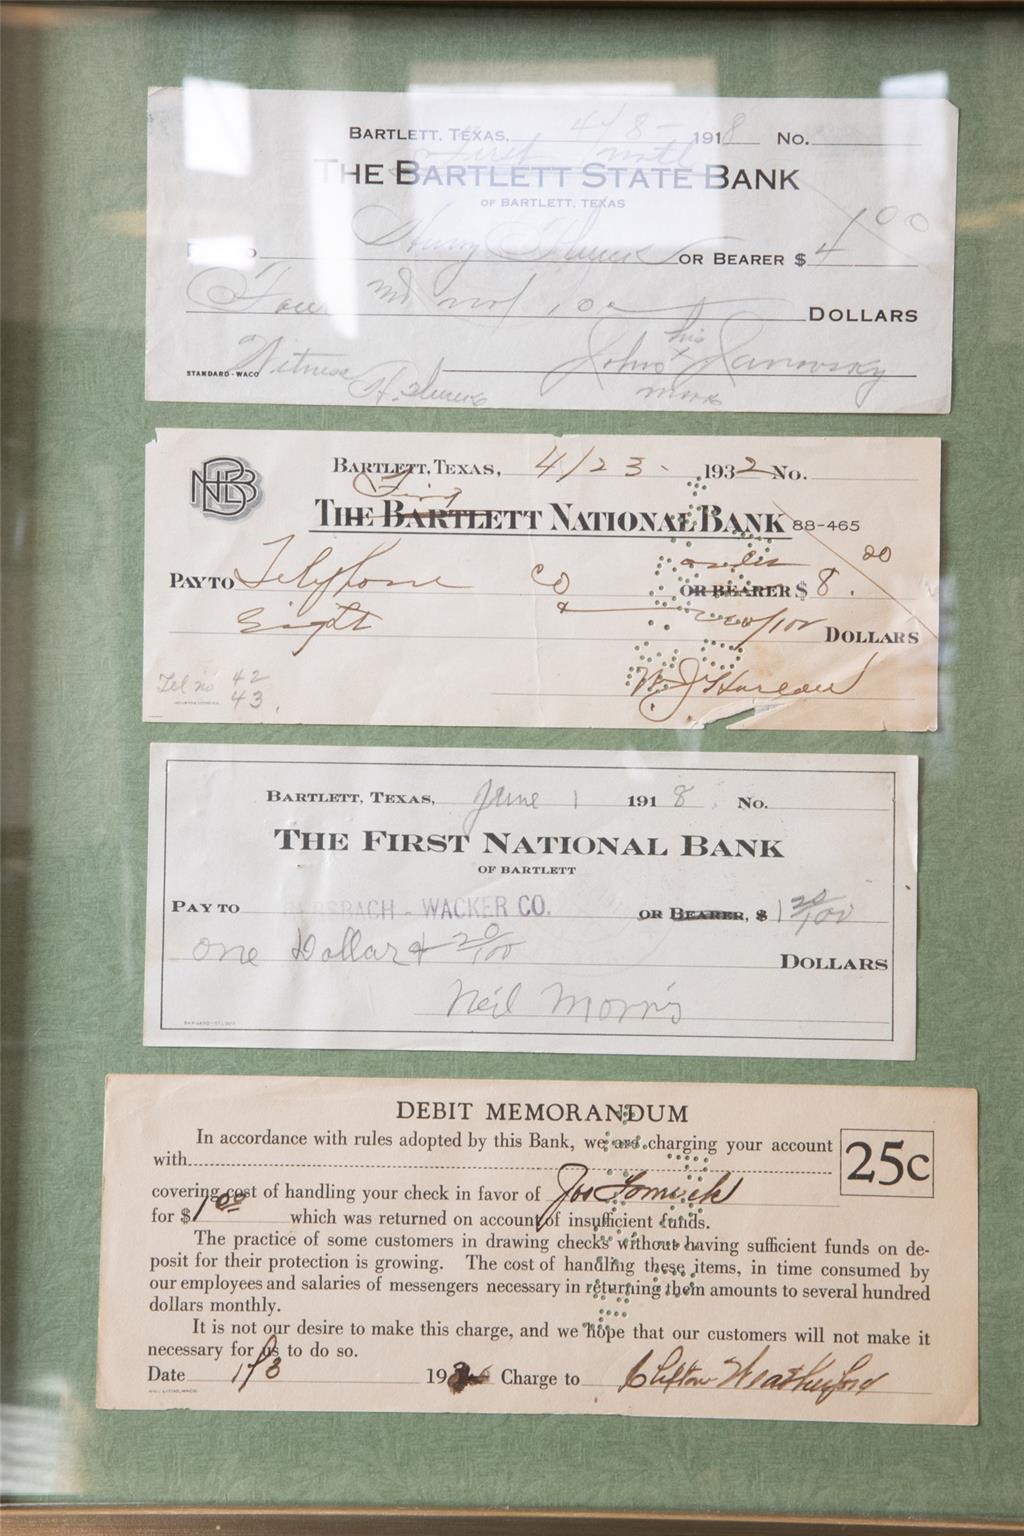 BARTLETT, TEXAS, 4/8- 1918 No.
First Natl
THE BARTLETT STATE BANK
OF BARTLETT, TEXAS
Harry OR BEARER $ 4 100
Four and no/100 DOLLARS
his
John x Janovsky
mark
STANDARD-WACO Witness
NBB
BARTLETT, TEXAS, 4/23- 1932 No.
First
THE BARTLETT NATIONAL BANK 88-465
order
PAY TO Telephone Co OR BEARER $ 8.00
Eight & 00/100 DOLLARS
Tel no 42
43. W. J.
BARTLETT, TEXAS, June 1 1918. No.
THE FIRST NATIONAL BANK
OF BARTLETT
PAY TO WACKER CO. OR BEARER, $ 1 20/100
one Dollar & 20/100 DOLLARS
Neil Morris
DEBIT MEMORANDUM
In accordance with rules adopted by this Bank, we are charging your account
with 25c
covering cost of handling your check in favor of Jos
for $ 1.00 which was returned on account of insufficient funds.
The practice of some customers in drawing checks without having sufficient funds on de-
posit for their protection is growing. The cost of handling these items, in time consumed by
our employees and salaries of messengers necessary in returning them amounts to several hundred
dollars monthly.
It is not our desire to make this charge, and we hope that our customers will not make it
necessary for us to do so.
Date 1/3 193 Charge to Clifton Weatherford